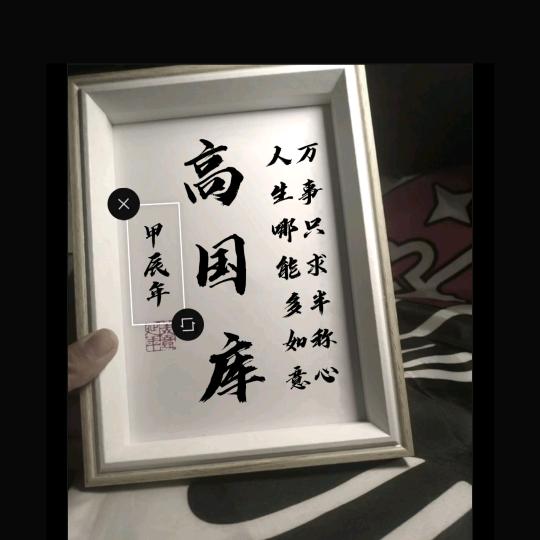 万事只求半称心
人生哪能多如意
高国库
甲辰年